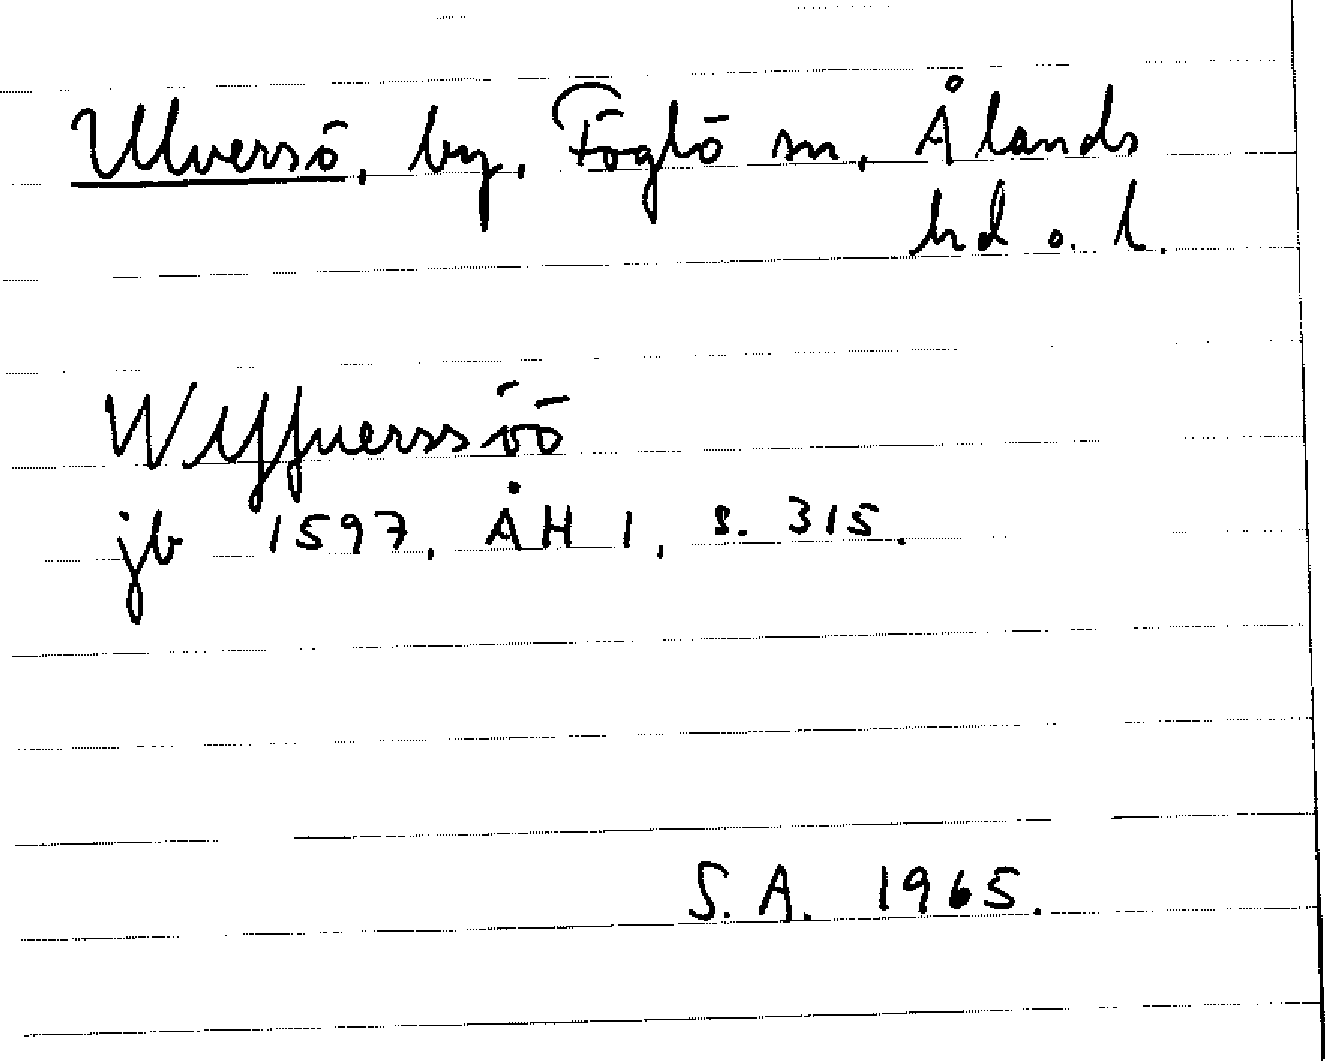 Ulversö, by, Föglö sn, Ålands
hd o. l.
Wlffuerssöö
jb 1597. ÅH 1, s. 315.
S.A. 1965.